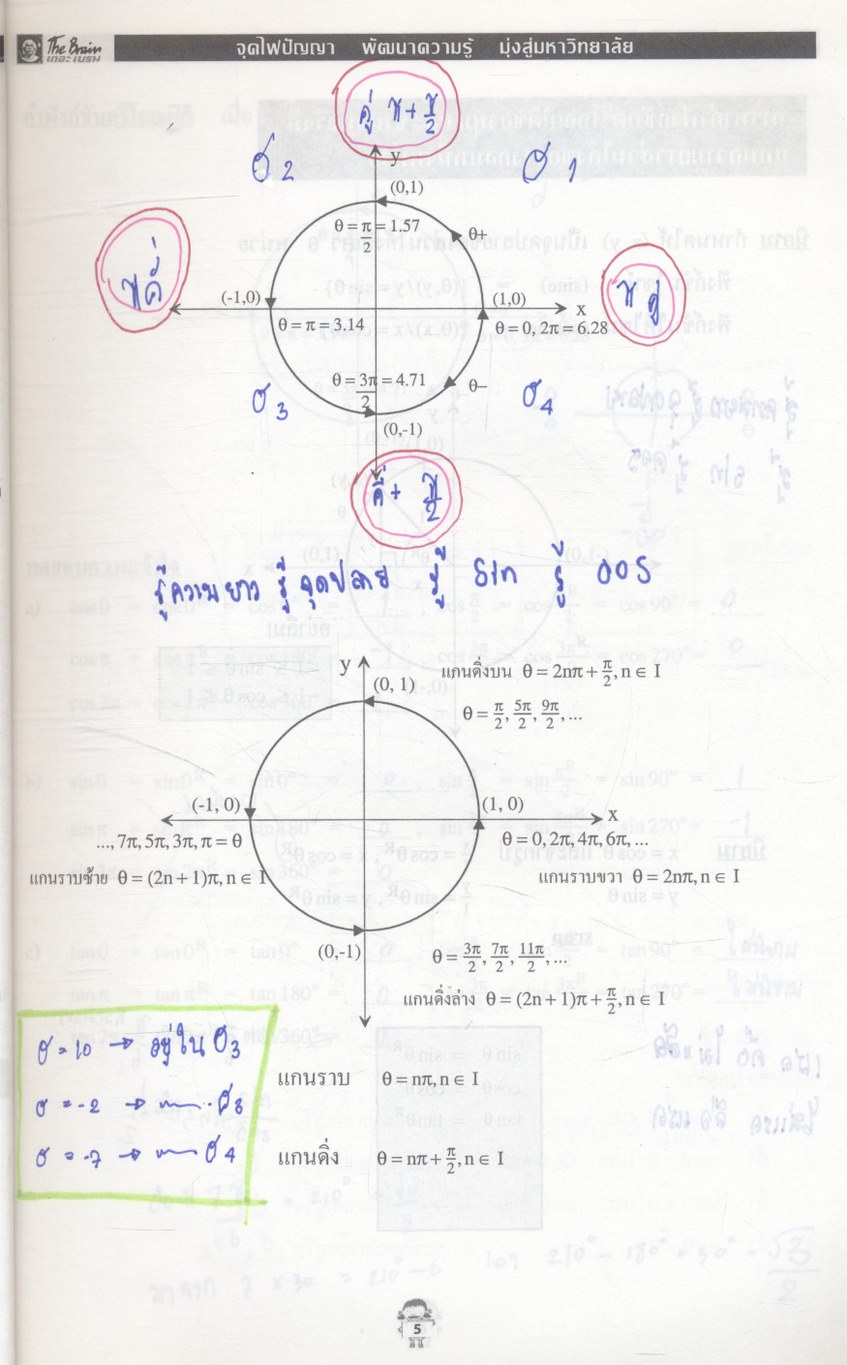 The Brain
เดอะเบรน
จุดไฟปัญญา พัฒนาความรู้ มุ่งสู่มหาวิทยาลัย
คู่ π + π/2
y
(0,1)
θ = π/2 = 1.57
θ+
π คี่
(-1,0)
(1,0)
x
π คู่
θ = π = 3.14
θ = 0, 2π = 6.28
θ = 3π/2 = 4.71
θ−
(0,-1)
คี่ + π/2
รู้ความยาว รู้จุดปลาย รู้ sin รู้ cos
y
(0, 1)
แกนดิ่งบน θ = 2nπ + π/2, n ∈ I
θ = π/2, 5π/2, 9π/2, ...
(-1, 0)
(1, 0)
x
..., 7π, 5π, 3π, π = θ
θ = 0, 2π, 4π, 6π, ...
แกนราบซ้าย θ = (2n + 1)π, n ∈ I
แกนราบขวา θ = 2nπ, n ∈ I
(0,-1)
θ = 3π/2, 7π/2, 11π/2, ...
แกนดิ่งล่าง θ = (2n + 1)π + π/2, n ∈ I
แกนราบ θ = nπ, n ∈ I
แกนดิ่ง θ = nπ + π/2, n ∈ I
5